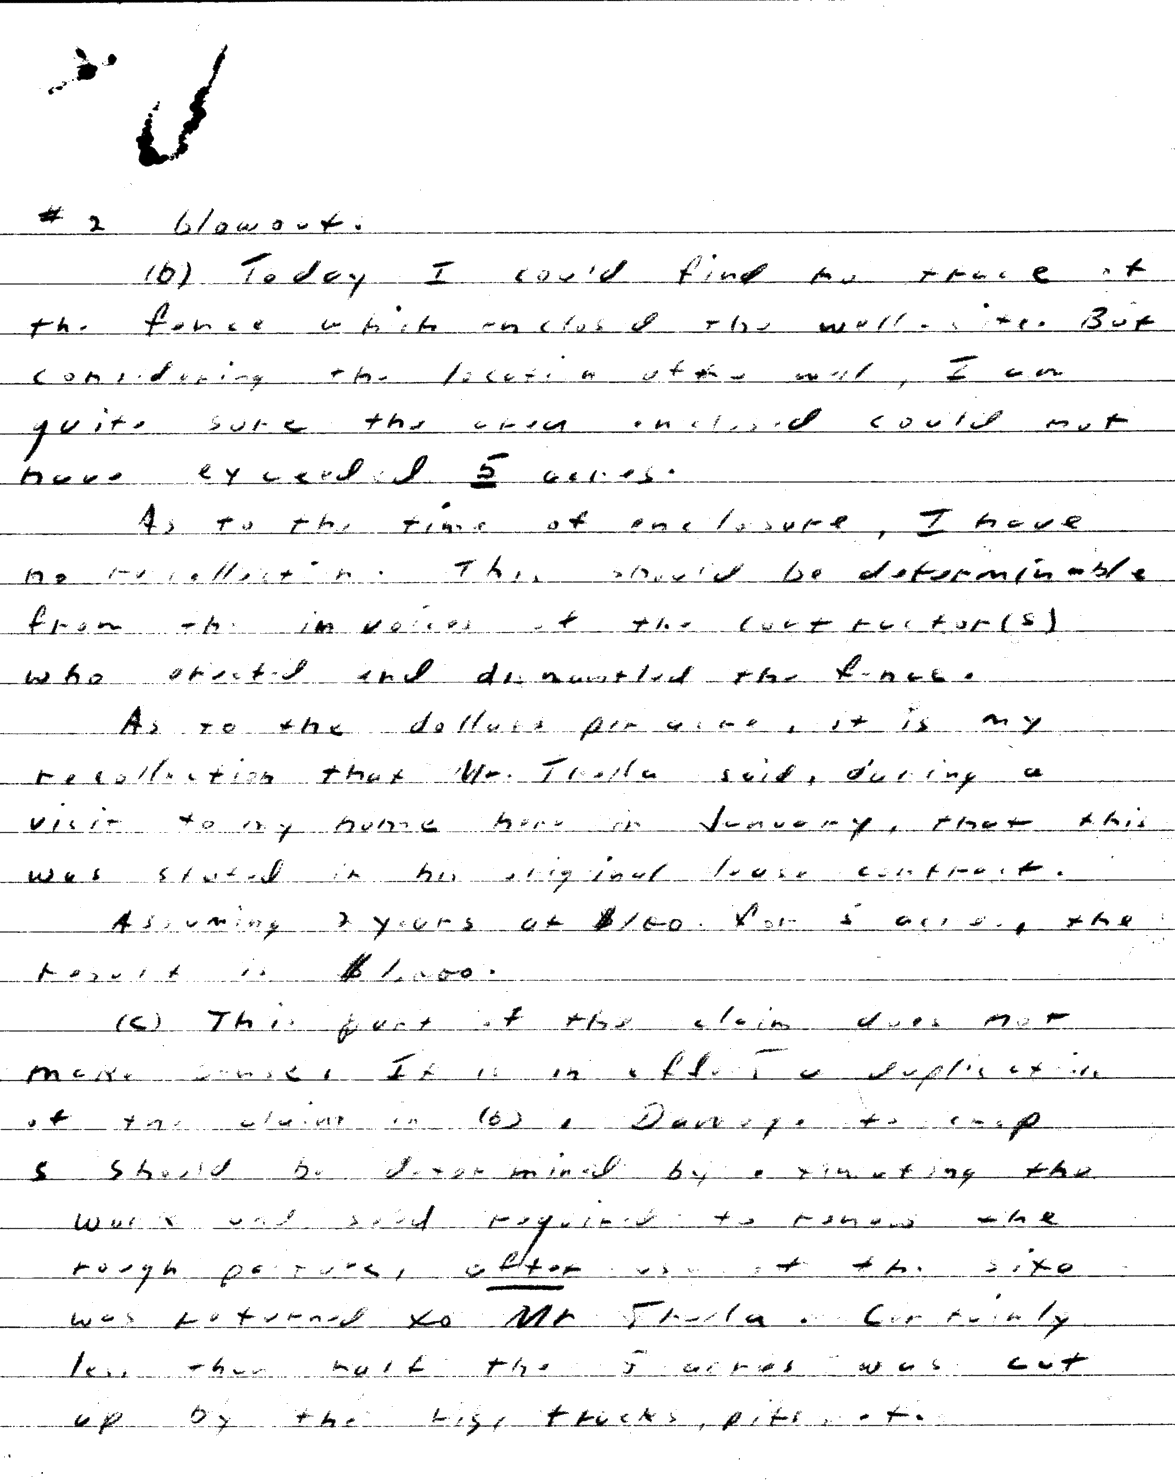 # 2 blowout.
(b) Today I could find no trace of
the fence which enclosed the well-site. But
considering the location of the well, I am
quite sure the area enclosed could not
have exceeded 5 acres.
As to the time of enclosure, I have
no recollection. This should be determinable
from the invoices of the contractor(s)
who erected and dismantled the fence.
As to the dollars per acre, it is my
recollection that Mr. Thella said, during a
visit to my home here in January, that this
was stated in his original lease contract.
Assuming 2 years at $100. for 5 acres, the
result is $1,000.
(c) This part of the claim does not
make sense. It is in effect a duplication
of the claim in (b). Damage to crop
s should be determined by estimating the
work and seed required to renew the
rough pasture, after use of the site
was returned to Mr Thella. Certainly
less than half the 5 acres was cut
up by the rig, trucks, pits, etc.